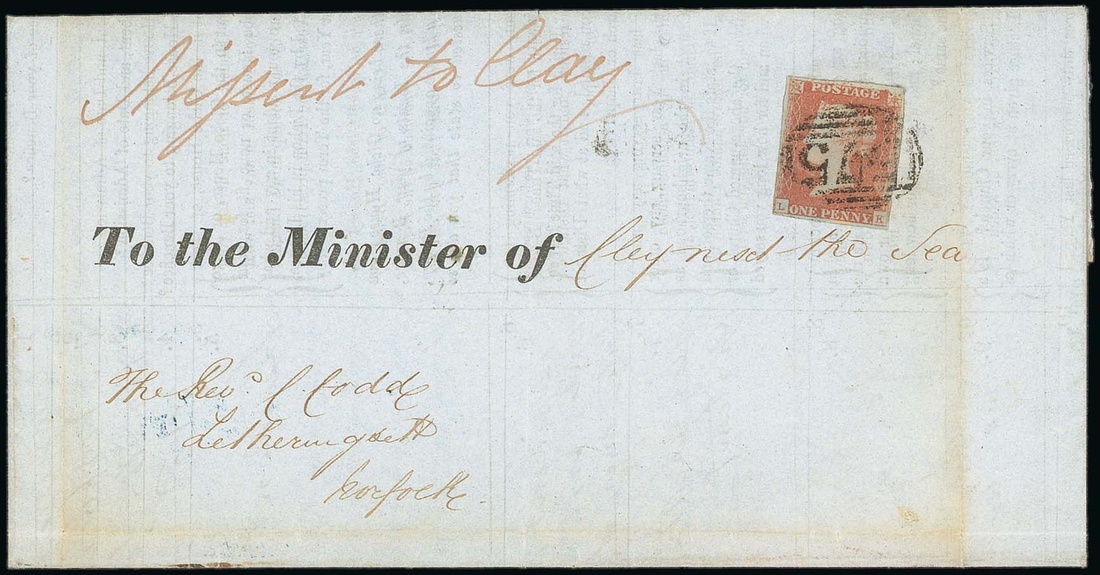 Missent to Clay
POSTAGE
75
L ONE PENNY K
To the Minister of Cley next the Sea
The Revd. C. Codd
Letheringsett
Norfolk